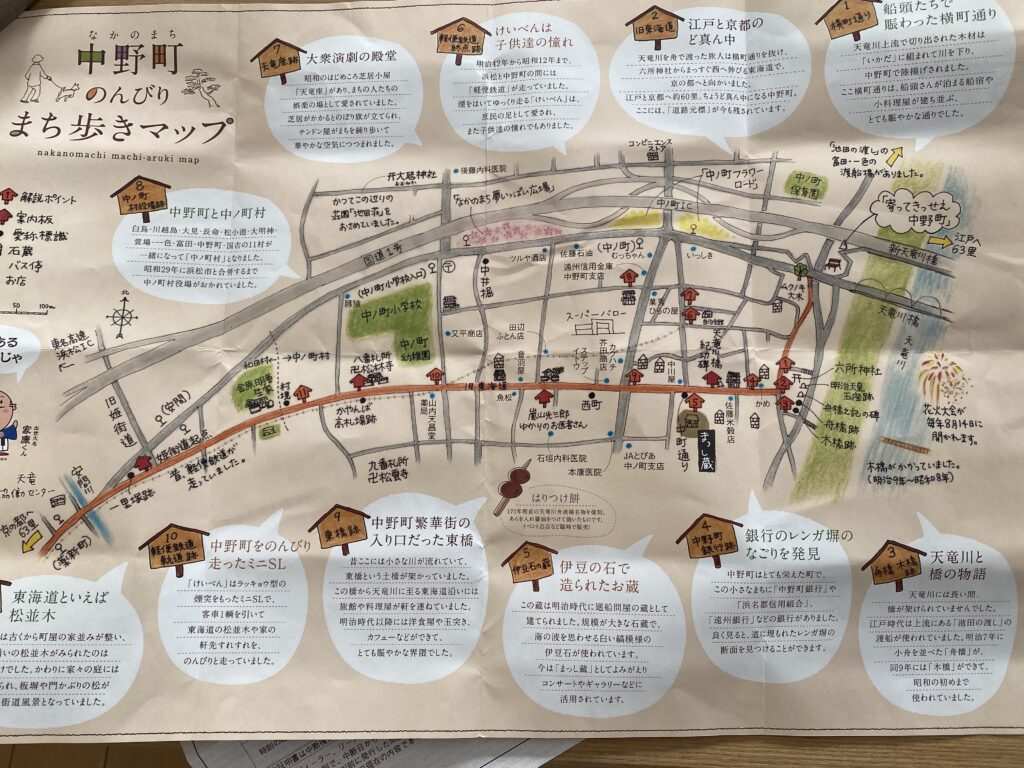 なかのまち
中野町
のんびり
まち歩きマップ
nakanomachi machi-aruki map
解説ポイント
案内板
愛称標識
石蔵
バス停
お店
50 100m
北
7
天竜座跡
大衆演劇の殿堂
昭和のはじめころ芝居小屋
「天竜座」があり、まちの人たちの
娯楽の場として愛されていました。
芝居がかかるとのぼり旗が立てられ、
チンドン屋がまちを練り歩いて
華やかな空気につつまれました。
6
軽便鉄道
終点跡
けいべんは
子供達の憧れ
明治42年から昭和12年まで、
浜松と中野町の間には
「軽便鉄道」が走っていました。
煙をはいてゆっくり走る「けいべん」は、
庶民の足として愛され、
また子供達の憧れでもありました。
2
旧東海道
江戸と京都の
ど真ん中
天竜川を舟で渡った旅人は横町通りを抜け、
六所神社からまっすぐ西へ伸びる東海道で、
京の都へと向かいました。
江戸と京都へ約60里、ちょうど真ん中になる中野町。
ここには、「道路元標」が今も残されています。
1
横町通り
船頭たちで
賑わった横町通り
天竜川上流で切り出された木材は
「いかだ」に組まれて川を下り、
中野町で陸揚げされました。
ここ横町通りは、船頭さんが泊まる船宿や
小料理屋が建ち並ぶ、
とても賑やかな通りでした。
8
中ノ町
村役場跡
中野町と中ノ町村
白鳥・川越島・大見・長命・松小池・大明神・
萱場・一色・富田・中野町・国吉の11村が
一緒になって「中ノ町村」となりました。
昭和29年に浜松市と合併するまで
中ノ町村役場がおかれていました。
コンビニエンス
ストア
後藤内科医院
開大龍神社
かつてこの辺りの
荘園「池田荘」を
おさめていました。
「なかのまち夢いっぱい広場」
「中ノ町フラワー
ロード」
中ノ町IC
中ノ町
保育園
「池田の渡し」の
富田・一色の
渡船場がありました。
寄ってきっせえ
中野町
江戸へ
63里
新天竜川橋
天竜川橋
天竜川
国道1号
ツルヤ酒店
佐藤石油
遠州信用金庫
中野町支店
(中ノ町)
むっちゃん
いっしき
ムクノキ
大木
中井堀
(中ノ町小学校入口)
豚猿
中ノ町小学校
中ノ町
幼稚園
又平商店
田辺
ふとん店
音羽屋
魚松
スーパーバロー
芥田商店
ひらの屋
紀功碑
中川屋
佐藤米穀店
かめ
六所神社
明治天皇
玉座跡
舟橋之記の碑
舟橋跡
木橋跡
花火大会が
毎年8月14日に
開かれます。
木橋がかかっていました。
(明治9年～昭和8年)
東名高速
浜松IC
旧姫街道
(安間)
→中ノ町村
金原明善
村境
11
八番札所
卍松林寺
かやんば
高札場跡
9
旧東海道
山内六昌堂
薬局
嵐山光三郎
ゆかりのお医者さん
西町
JAとぴあ
中ノ町支店
石垣内科医院
本康医院
中町通り
まっし蔵
九番札所
卍松雲寺
姫街道起点
一里塚跡
昔、軽便鉄道が
走っていました。
安間川
天竜
協働センター
京の都へ
63里
(薬新町)
はりつけ餅
170年程前の天竜川舟渡場名物を復刻。
あんを入れ醤油をつけて焼いたものです。
イベント出店など臨時で販売!
東海道といえば
松並木
は古くから町屋の家並みが整い、
いの松並木がみられたのは
けでした。かわりに家々の庭には
られ、板塀や門かぶりの松が
街道風景となっていました。
10
軽便鉄道
軌道跡
中野町をのんびり
走ったミニSL
「けいべん」はラッキョウ型の
煙突をもったミニSLで、
客車1輌を引いて
東海道の松並木や家の
軒先すれすれを、
のんびりと走っていました。
9
東橋跡
中野町繁華街の
入り口だった東橋
ここには昔小さな川が流れていて、
東橋という土橋が架かっていました。
この橋から天竜川に至る東海道沿いには
旅館や料理屋が軒を連ねていました。
明治時代以降には洋食屋や玉突き、
カフェーなどができて、
とても賑やかな界隈でした。
5
伊豆石の蔵
伊豆の石で
造られたお蔵
この蔵は明治時代に廻船問屋の蔵として
建てられました。規模が大きな石蔵で、
海の波を思わせる白い縞模様の
伊豆石が使われています。
今は「まっし蔵」としてよみがえり
コンサートやギャラリーなどに
活用されています。
4
中野町
銀行跡
銀行のレンガ塀の
なごりを発見
中野町はとても栄えた町で、
この小さなまちに「中野町銀行」や
「浜名郡信用組合」、
「遠州銀行」などの銀行がありました。
良く見ると、道に埋もれたレンガ塀の
断面を見つけることができます。
3
舟橋 木橋
跡
天竜川と
橋の物語
天竜川には長い間、
橋が架けられていませんでした。
江戸時代は上流にある「池田の渡し」の
渡船が使われていました。明治7年に
小舟を並べた「舟橋」が、
同9年には「木橋」ができて、
昭和の初めまで
使われていました。